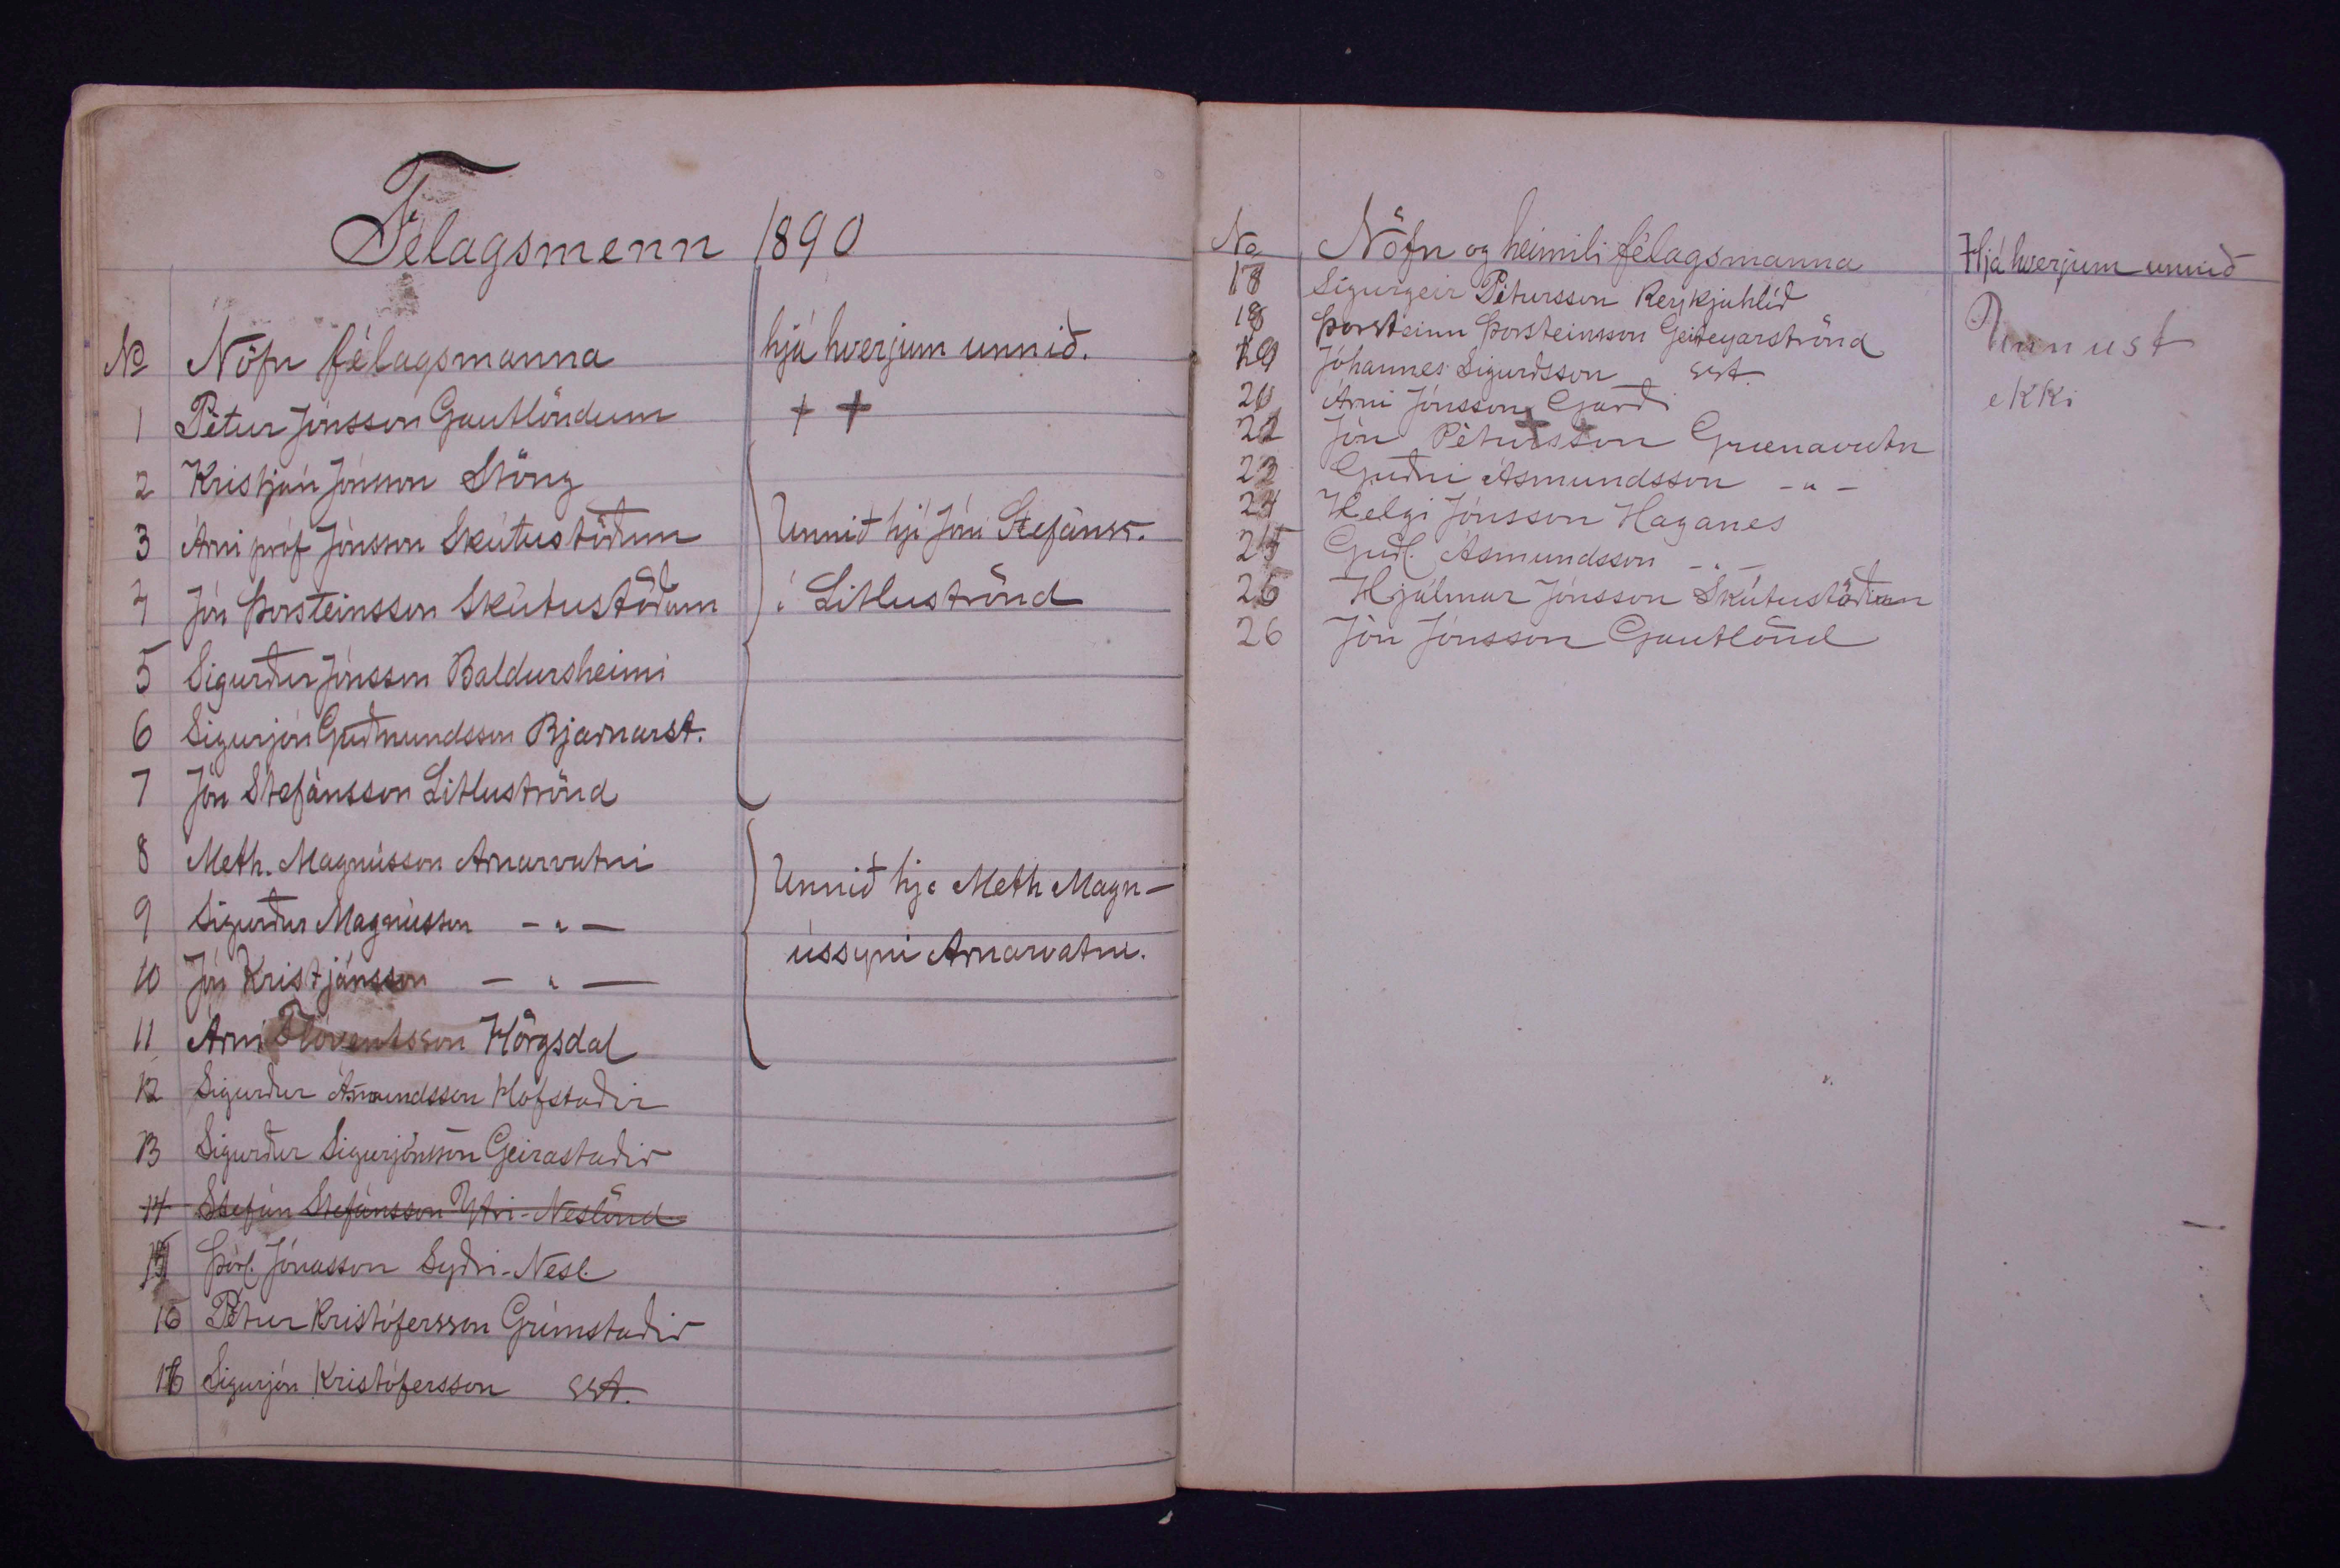 Félagsmenn 1890
No Nöfn félagsmanna hjá hverjum unnið.
1 Pétur Jónsson Gautlöndum + +
2 Kristján Jónsson Stöng
3 Árni próf Jónsson Skútustöðum Unnið hjá Jóni Stefánss.
4 Jón Þorsteinsson Skútustöðum á Litluströnd
5 Sigurður Jónsson Baldursheimi
6 Sigurjón Guðmundsson Bjarnarst.
7 Jón Stefánsson Litluströnd
8 Meth. Magnússon Arnarvatni
9 Sigurður Magnússon - " - Unnið hjá Meth Magn-
10 Jón Kristjánsson - " - ússyni Arnarvatni.
11 Árni Flóventsson Hörgsdal
12 Sigurður Ásmundsson Hofstaðir
13 Sigurður Sigurjónsson Geirastaðir
14 Stefán Stefánsson Ytri-Neslönd
15 Þorl. Jónasson Syðri-Nesl.
16 Pétur Kristófersson Grímstaðir
Sigurjón Kristófersson sst.
No Nöfn og heimili félagsmanna Hjá hverjum unnið
18 Sigurgeir Pétursson Reykjahlíð
Þorsteinn Þorsteinsson Geiteyarströnd Vannst
Jóhannes Sigurðsson sst.
Árni Jónsson Garði ekki
22 Jón Pétursson Grænavatn
23 Guðni Ásmundsson - " -
24 Helgi Jónsson Haganes
25 Guðl. Ásmundsson - " -
Hjálmar Jónsson Skútustöðum
26 Jón Jónsson Gautlönd